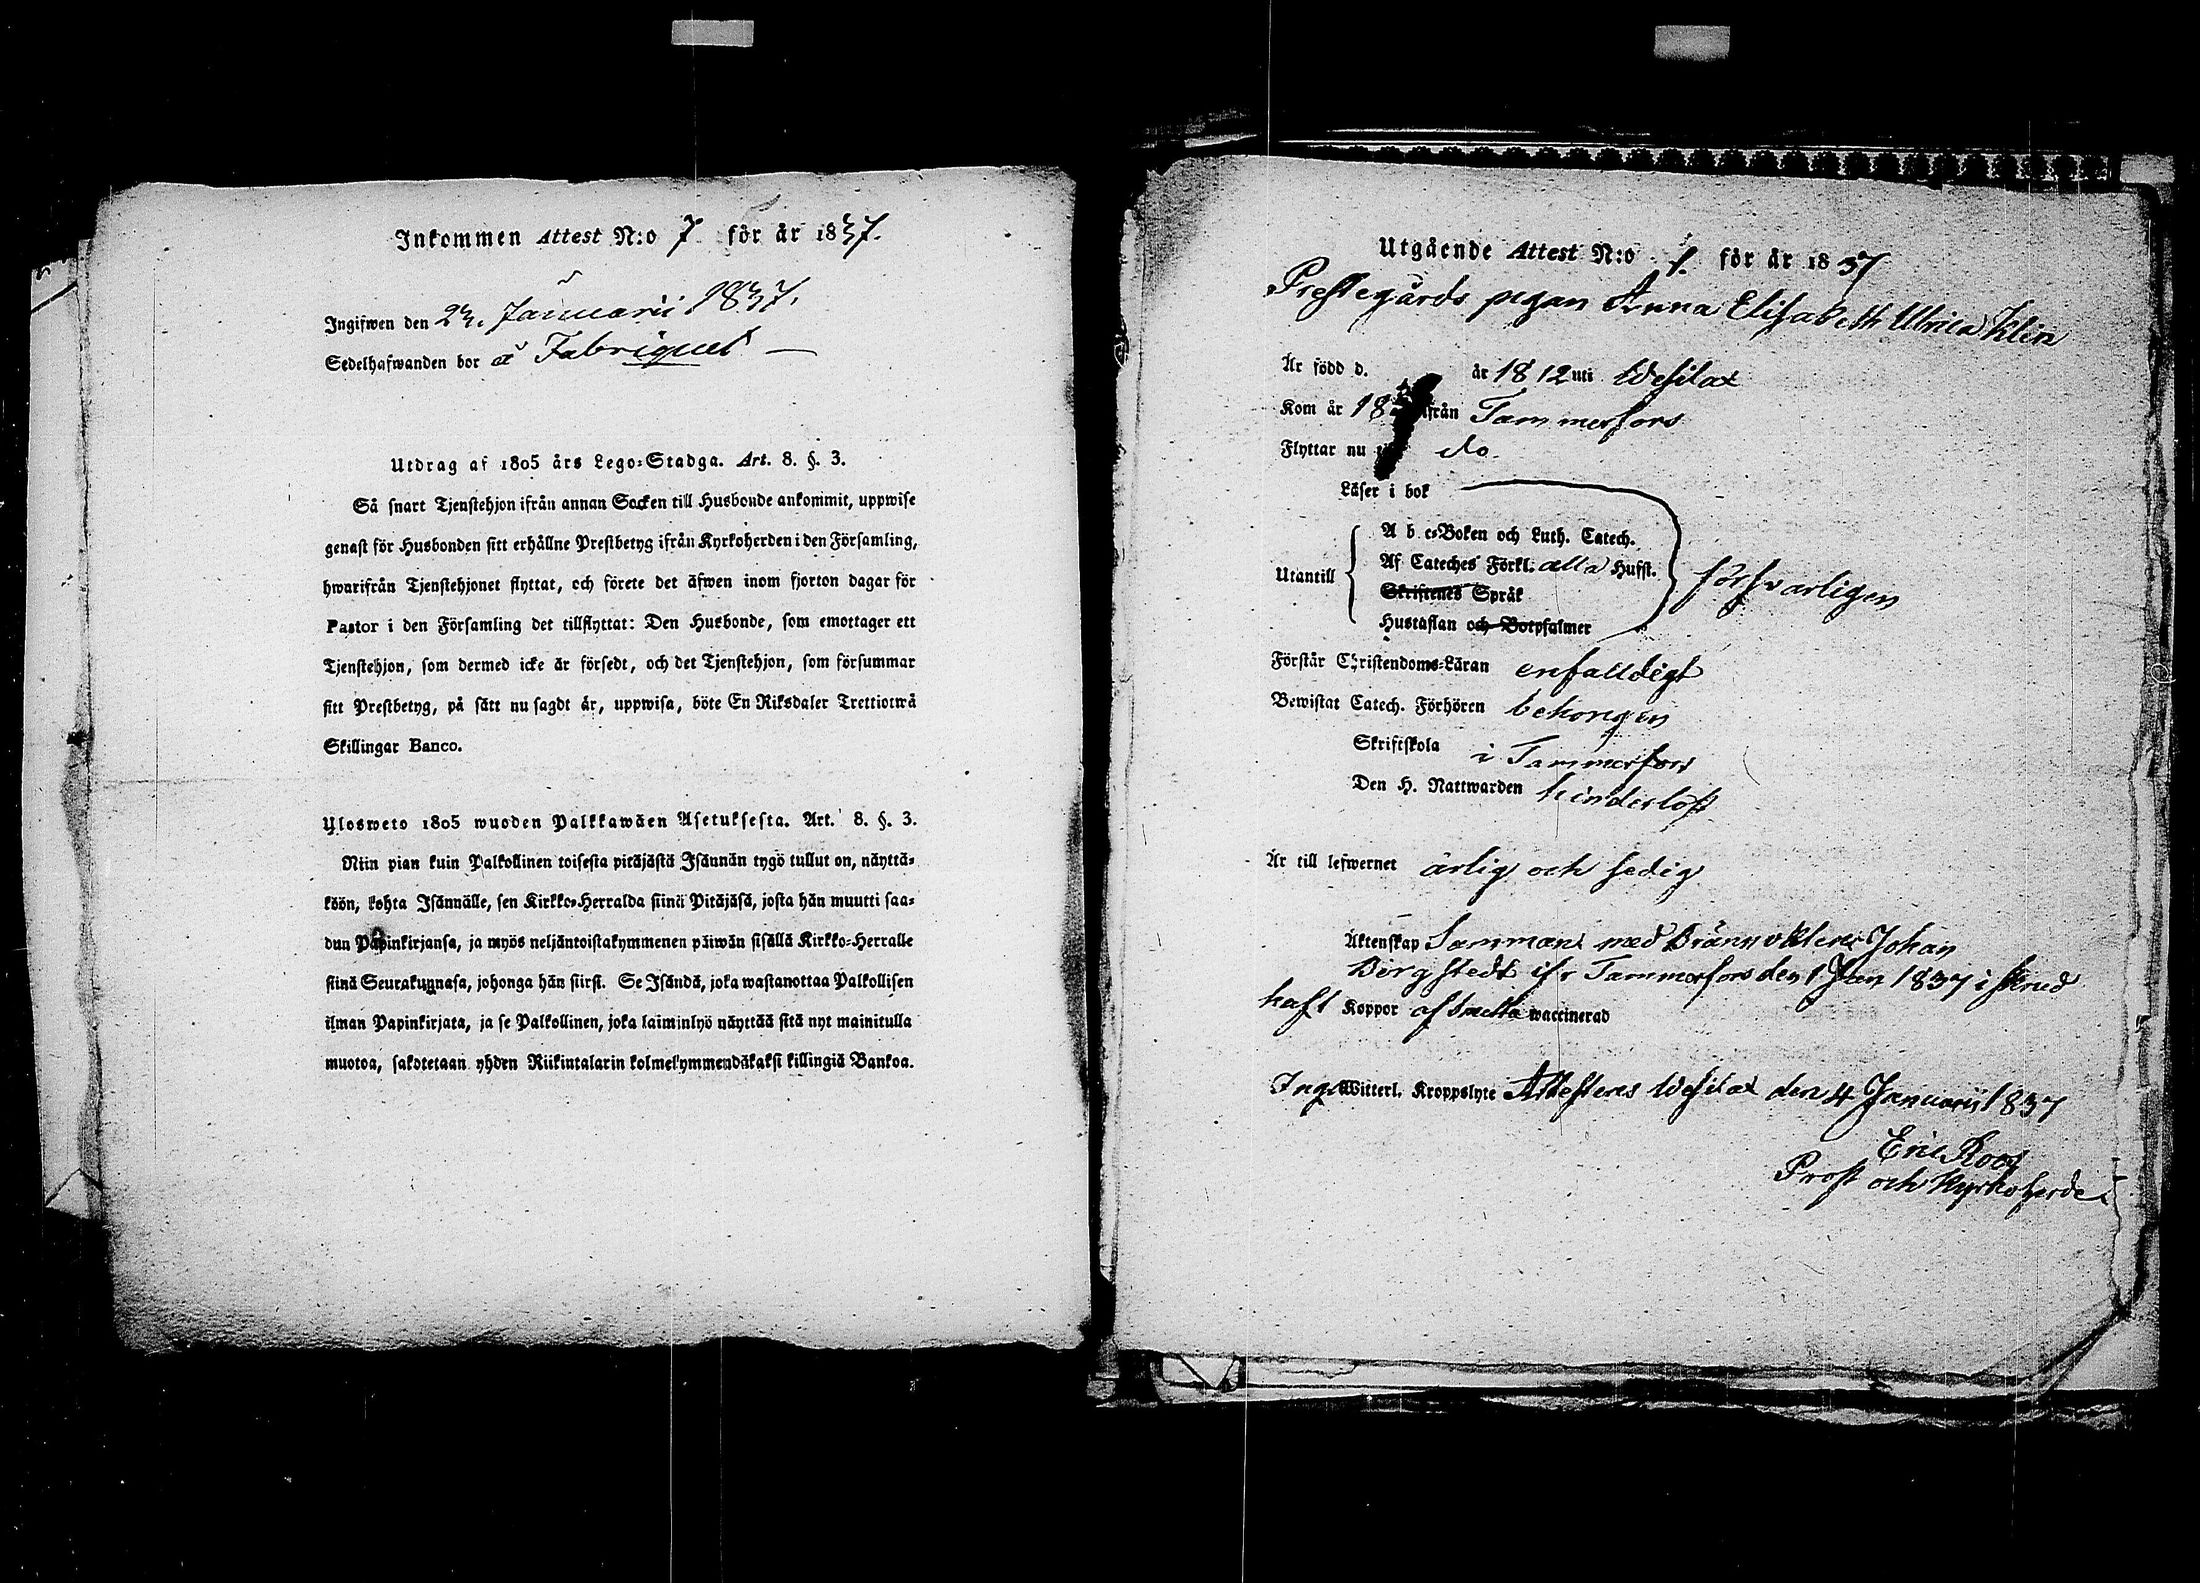 Inkommen Attest N:o 7. för år 1837.
Ingifwen den 23. Januarii 1837.
Sedelhafwanden bor å Fabriquet
Utdrag af 1805 års Lego-Stadga. Art. 8. §. 3.
Så snart Tjenstehjon ifrån annan Socken till Husbonde ankommit, uppwise
genast för Husbonden sitt erhållne Prestbetyg ifrån Kyrkoherden i den Församling,
hwarifrån Tjenstehjonet flyttat, och förete det äfwen inom fjorton dagar för
Pastor i den Församling det tillflyttat: Den Husbonde, som emottager ett
Tjenstehjon, som dermed icke är försedt, och det Tjenstehjon, som försummar
sitt Prestbetyg, på sätt nu sagdt är, uppwisa, böte En Riksdaler Trettiotwå
Skillingar Banco.
Ulosweto 1805 wuoden Palkkawäen Asetuksesta. Art. 8. §. 3.
Niin pian kuin Palkollinen toisesta pitäjästä Isännän tygö tullut on, näyttä-
köön, kohta Isännälle, sen Kirkko-Herralda siinä Pitäjäsä, josta hän muutti saa-
dun Papinkirjansa, ja myös neljäntoistakymmenen päiwän sisällä Kirkko-Herralle
siinä Seurakunnasa, johonga hän siirsi. Se Isändä, joka wastanottaa Palkollisen
ilman Papinkirjata, ja se Palkollinen, joka laiminlyö näyttää sitä nyt mainitulla
muotoa, sakotetaan yhden Riikintalarin kolmekymmendäkaksi killingiä Bankoa.
Utgående Attest N:o 1. för år 1837
Prestegårds pigan Anna Elisabeth Ulrica Klin
Är född d. år 1812 uti Wesilax
Kom år 18 ifrån Tammerfors
Flyttar nu do.
Läser i bok
A b c-Boken och Luth. Catech.
Af Cateches Förkl. alla Hufst.
Utantill försvarligen
Skriftenes Språk
Hustaflan och Botpsalmer
Förstår Christendoms-Läran enfalldigt
Bewistat Catech. Förhören behorigen
Skriftskola i Tammerfors
Den H. Nattwarden hinderlöst
Är till lefwernet ärlig och sedig
Äktenskap Sammans med Johan
Bergstedt ifr Tammerfors den 1 Jan 1837 i skrud
haft Koppor af smitta waccinerad
Inge Witterl. Kroppslyte Attesteras Wesilax den 4 Januarii 1837
Eric Roos
Prost och Kyrkoherde.